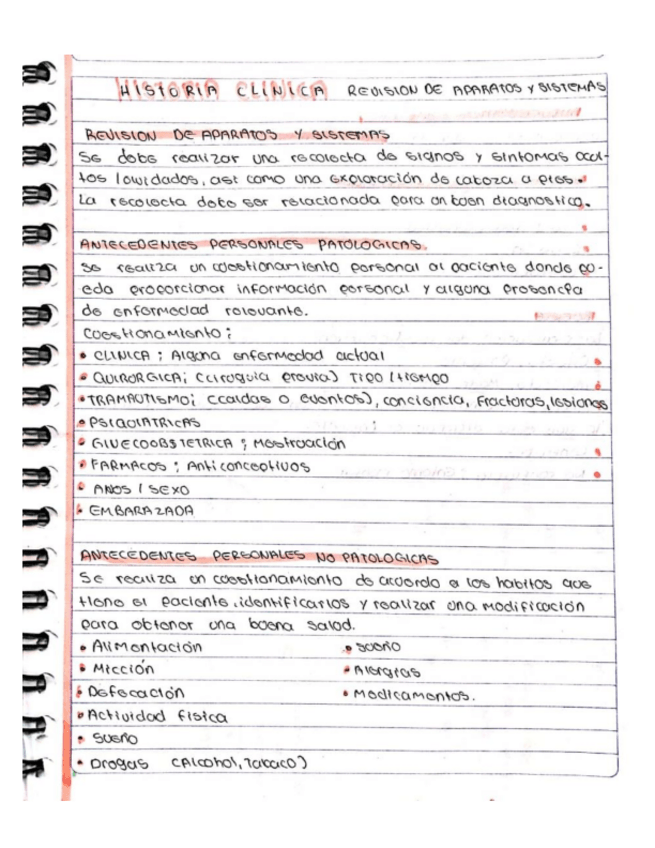 HISTORIA CLINICA REVISION DE APARATOS Y SISTEMAS
REVISION DE APARATOS Y SISTEMAS
Se debe realizar una recolecta de signos y sintomas ocul-
tos / olvidados, asi como una exploración de cabeza a pies.
La recolecta debe ser relacionada para un buen diagnostico.
ANTECEDENTES PERSONALES PATOLOGICAS.
Se realiza un cuestionamiento personal al paciente donde pu-
eda proporcionar información personal y alguna presencia
de enfermedad relevante.
Cuestionamiento:
• CLINICA: Alguna enfermedad actual
• QUIRURGICA: (cirugia previa) Tipo / tiempo
• TRAMAUTISMO: (caidas o eventos), conciencia, fracturas, lesiones
• PSIQUIATRICAS
• GINECOOBSTETRICA: Mestruación
• FARMACOS: Anticonceptivos
• AÑOS / SEXO
• EMBARAZADA
ANTECEDENTES PERSONALES NO PATOLOGICAS
Se realiza un cuestionamiento de acuerdo a los habitos que
tiene el paciente, identificarlos y realizar una modificación
para obtener una buena salud.
• Alimentación • Sueño
• Micción • Alergias
• Defecación • Medicamentos.
• Actividad fisica
• Sueño
• Drogas (Alcohol, Tabaco)